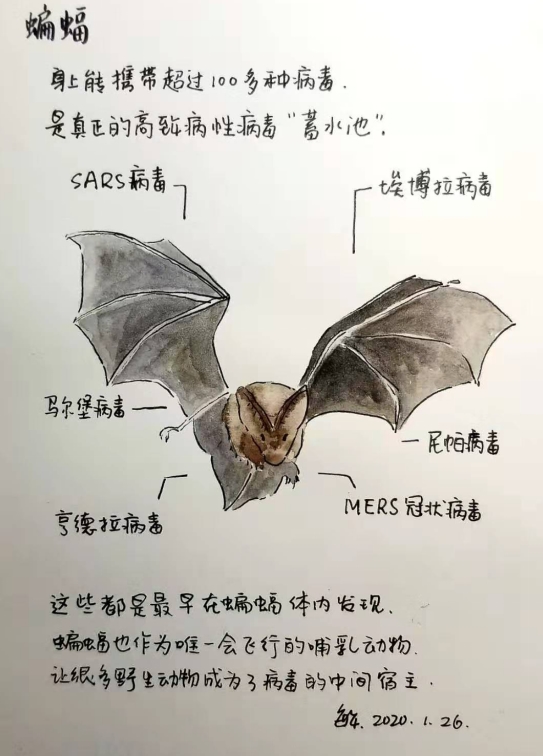 蝙蝠
身上能携带超过100多种病毒.
是真正的高致病性病毒“蓄水池”.
SARS病毒
埃博拉病毒
马尔堡病毒
尼帕病毒
亨德拉病毒
MERS冠状病毒
这些都是最早在蝙蝠体内发现.
蝙蝠也作为唯一会飞行的哺乳动物.
让很多野生动物成为了病毒的中间宿主.
2020.1.26.